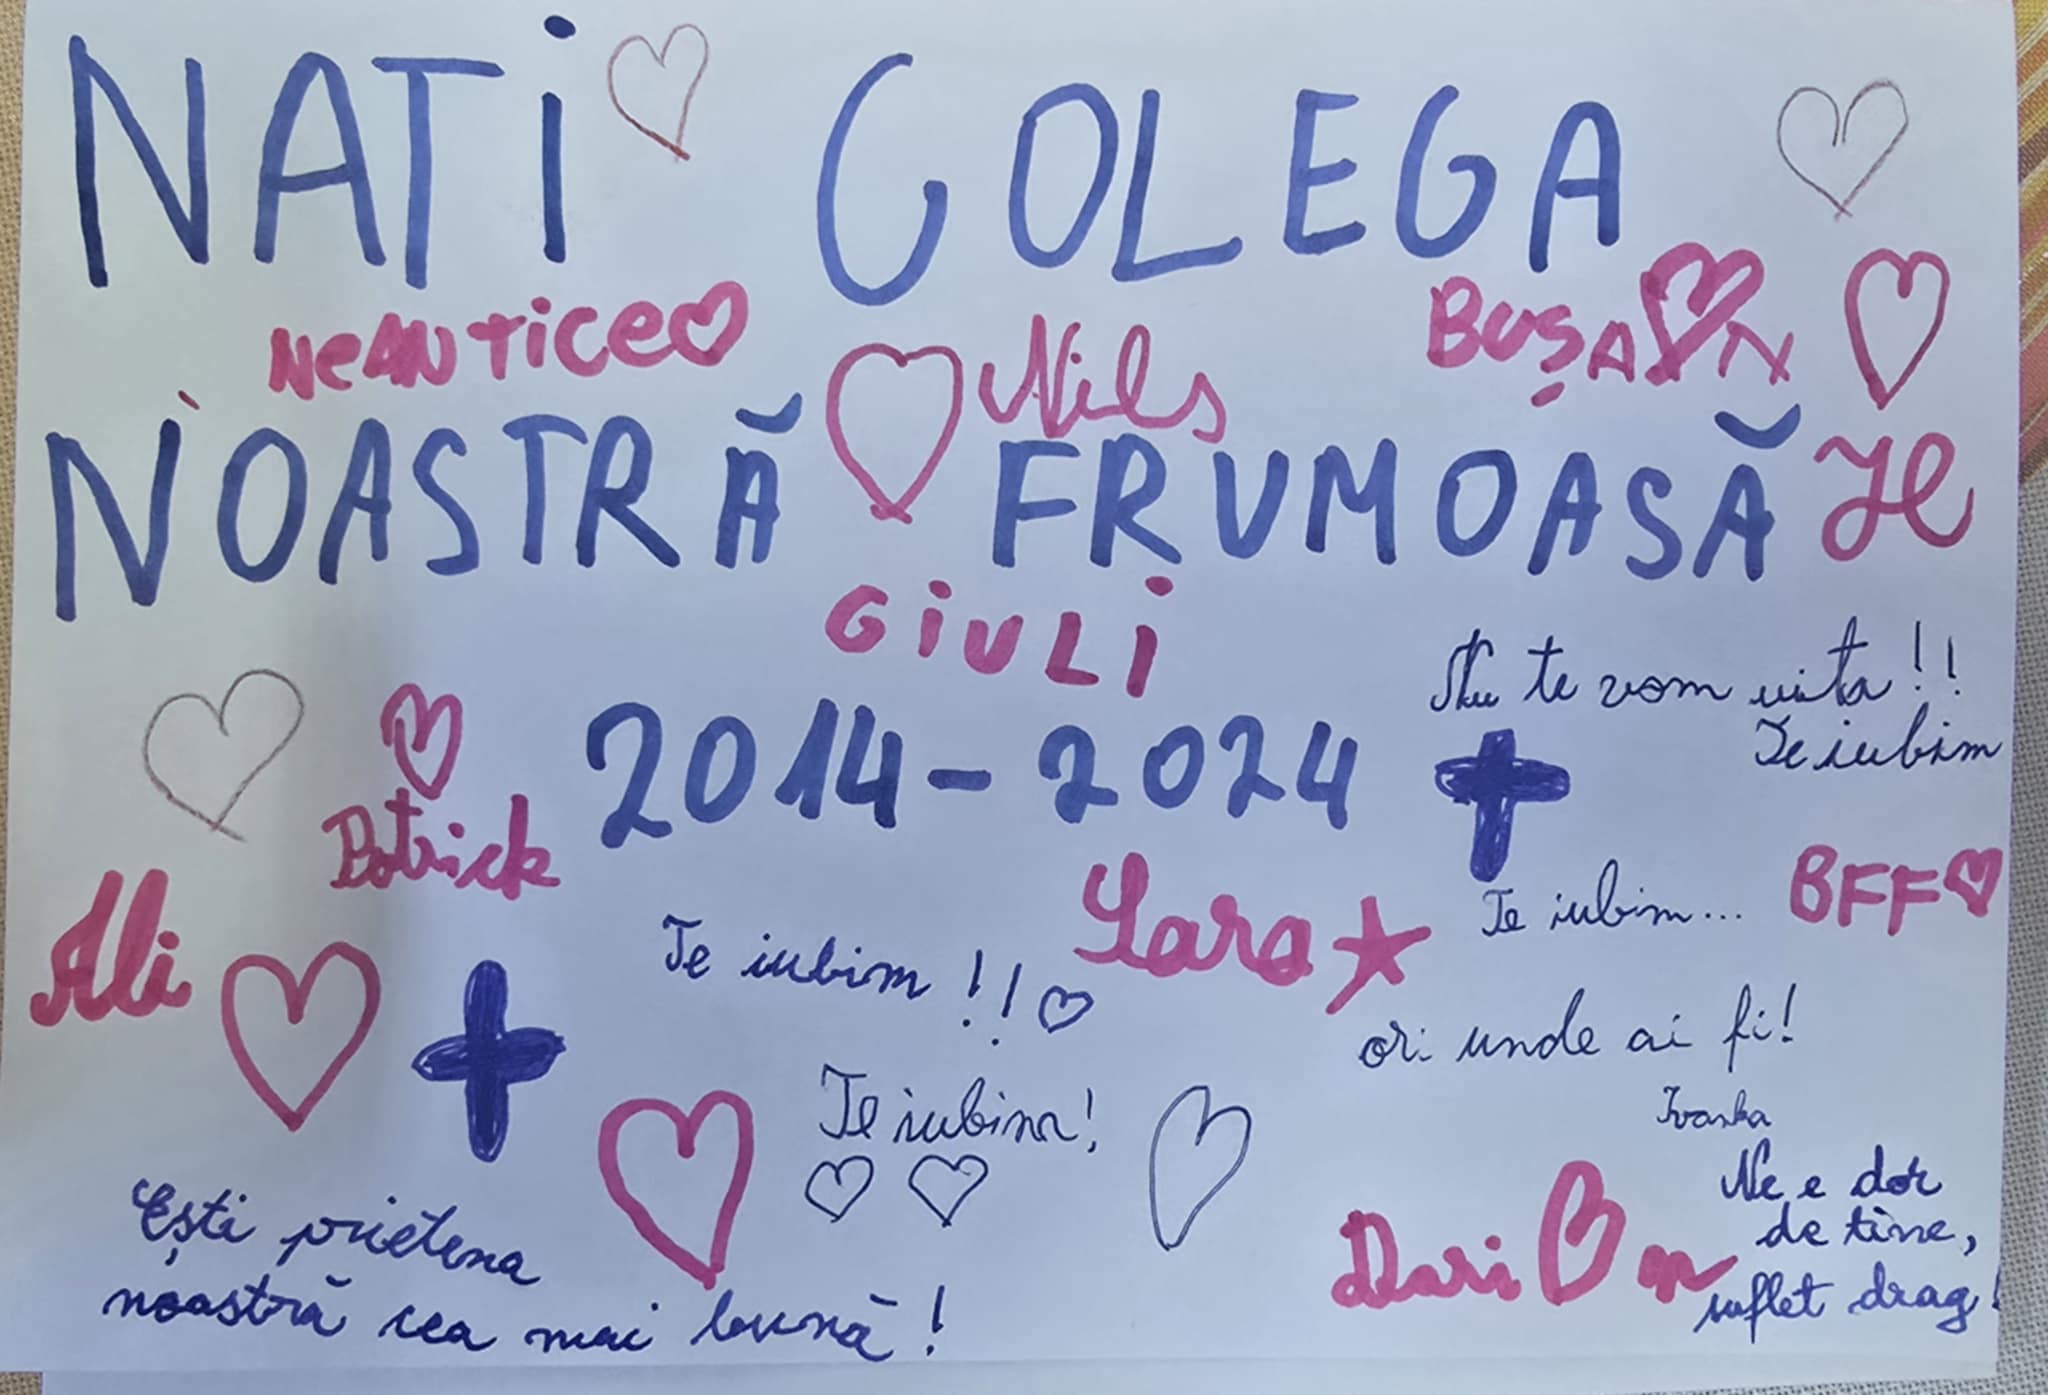 NATi COLEGA
NeANTiCe
Nils
BUȘAN
NOASTRĂ FRUMOASĂ
GiULi
Nu te vom uita!!
Te iubim
2014-2024
Patrick
Ali
Sara
Te iubim...
BFF
Te iubim!!
ori unde ai fi!
Te iubim!
Ivanka
Ne e dor
de tine,
suflet drag!
Dari
Ești prietena
noastră cea mai bună!